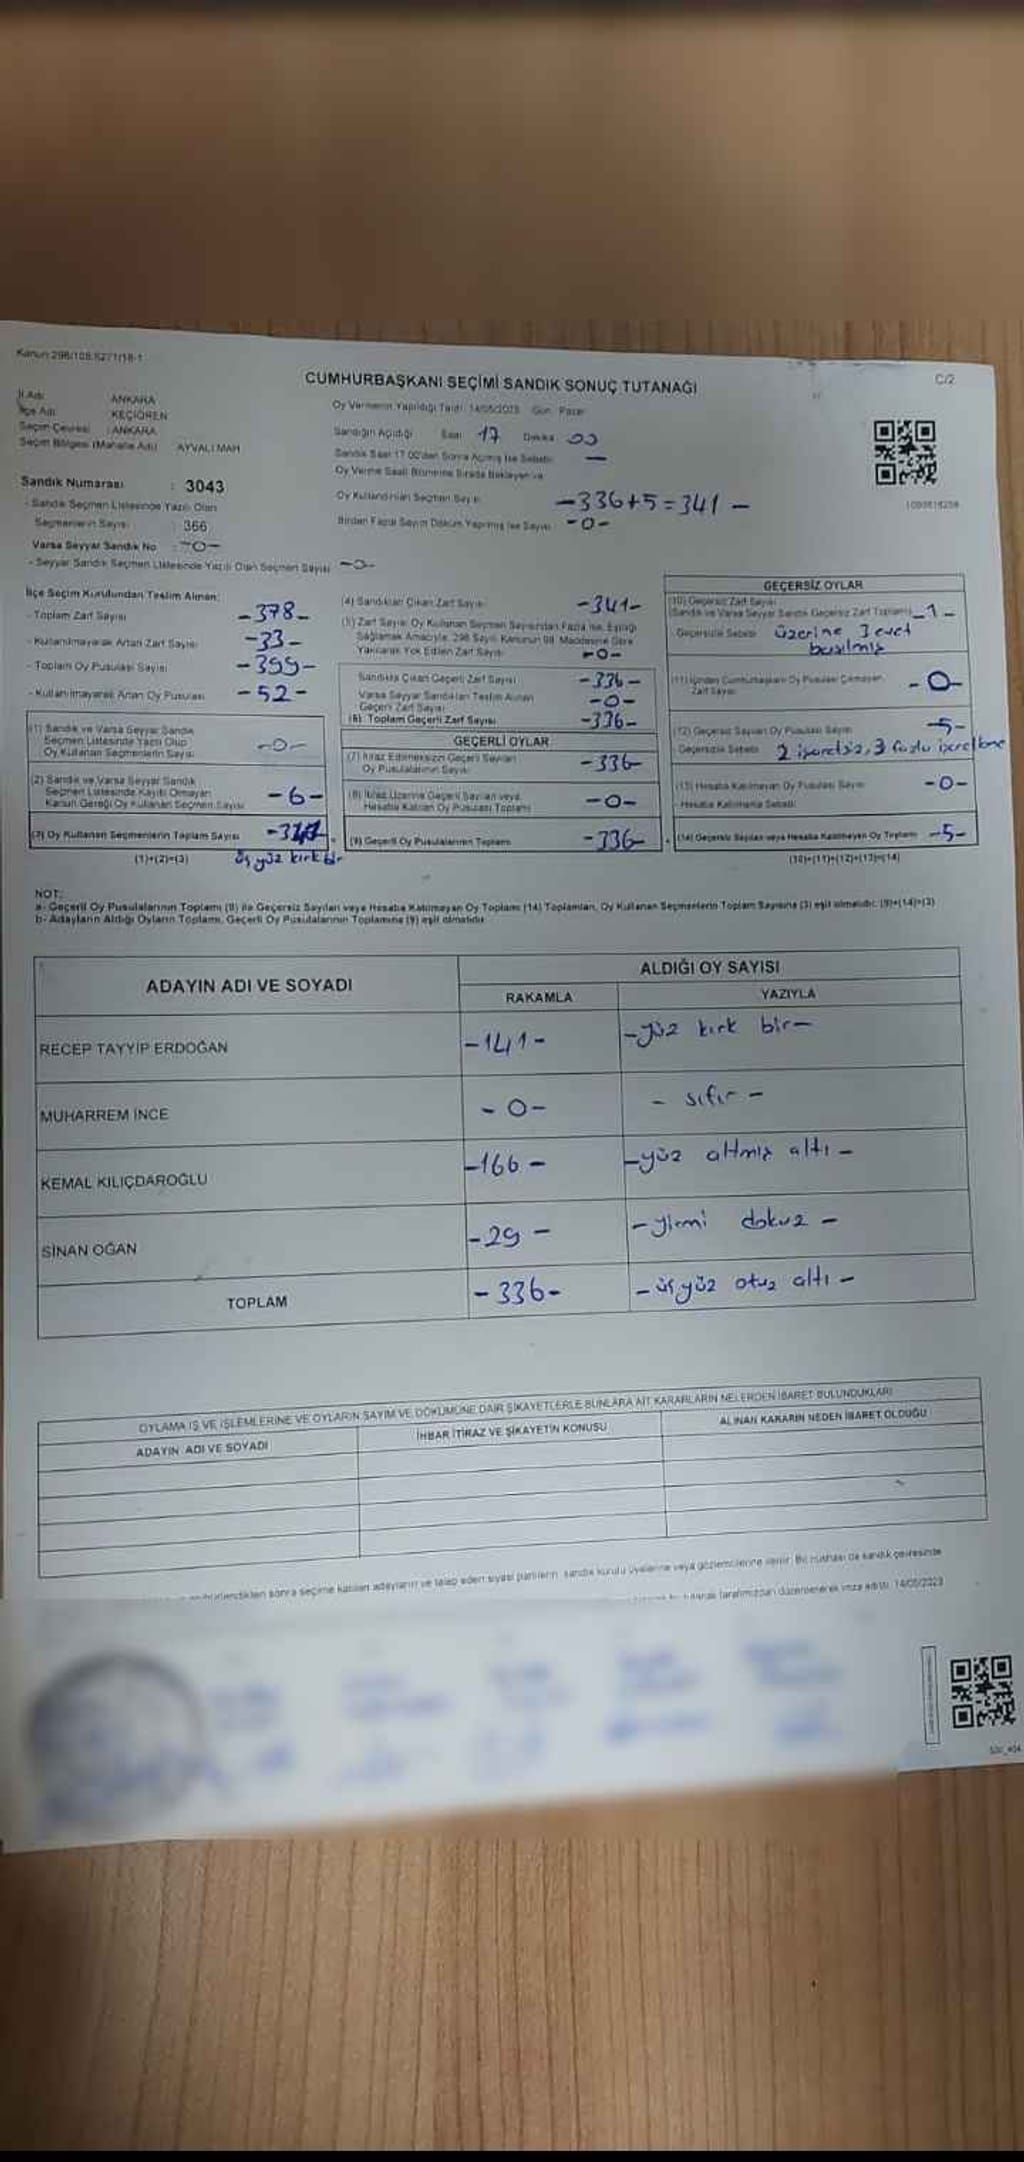 Kanun 298/105.6271/18-1
C/2
CUMHURBAŞKANI SEÇİMİ SANDIK SONUÇ TUTANAĞI
İl Adı: ANKARA
İlçe Adı: KEÇİÖREN
Seçim Çevresi: ANKARA
Seçim Bölgesi (Mahalle Adı) AYVALI MAH
Sandık Numarası : 3043
- Sandık Seçmen Listesinde Yazılı Olan
Seçmenlerin Sayısı : 366
Varsa Seyyar Sandık No : -0-
- Seyyar Sandık Seçmen Listesinde Yazılı Olan Seçmen Sayısı -0-
Oy Vermenin Yapıldığı Tarih: 14/05/2023 Gün: Pazar
Sandığın Açıldığı Saat 17 Dakika 00
Sandık Saat 17.00'dan Sonra Açılmış İse Sebebi: —
Oy Verme Saati Bitiminde Sırada Bekleyen ve
Oy Kullandırılan Seçmen Sayısı -336+5=341-
Birden Fazla Sayım Döküm Yapılmış İse Sayısı -0-
İlçe Seçim Kurulundan Teslim Alınan:
- Toplam Zarf Sayısı -378-
- Kullanılmayarak Artan Zarf Sayısı -33-
- Toplam Oy Pusulası Sayısı -399-
- Kullanılmayarak Artan Oy Pusulası -52-
(1) Sandık ve Varsa Seyyar Sandık
Seçmen Listesinde Yazılı Olup
Oy Kullanan Seçmenlerin Sayısı -0-
(2) Sandık ve Varsa Seyyar Sandık
Seçmen Listesinde Kayıtlı Olmayan
Kanun Gereği Oy Kullanan Seçmen Sayısı -6-
(3) Oy Kullanan Seçmenlerin Toplam Sayısı
(1)+(2)=(3) üç yüz kırk bir
(4) Sandıktan Çıkan Zarf Sayısı -341-
(5) Zarf Sayısı Oy Kullanan Seçmen Sayısından Fazla İse, Eşitliği
Sağlamak Amacıyla, 298 Sayılı Kanunun 98. Maddesine Göre
Yakılarak Yok Edilen Zarf Sayısı -0-
Sandıkta Çıkan Geçerli Zarf Sayısı -336-
Varsa Seyyar Sandıktan Teslim Alınan
Geçerli Zarf Sayısı -0-
(6) Toplam Geçerli Zarf Sayısı -336-
GEÇERLİ OYLAR
(7) İtiraz Edilmeksizin Geçerli Sayılan
Oy Pusulalarının Sayısı -336-
(8) İtiraz Üzerine Geçerli Sayılan veya
Hesaba Katılan Oy Pusulası Toplamı -0-
(9) Geçerli Oy Pusulalarının Toplamı -336-
GEÇERSİZ OYLAR
(10) Geçersiz Zarf Sayısı
(Sandık ve Varsa Seyyar Sandık Geçersiz Zarf Toplamı) -1-
Geçersizlik Sebebi üzerine 3 evet
basılmış
(11) İçinden Cumhurbaşkanı Oy Pusulası Çıkmayan
Zarf Sayısı -0-
(12) Geçersiz Sayılan Oy Pusulası Sayısı -5-
Geçersizlik Sebebi 2 işaretsiz, 3 fazla işaretleme
(13) Hesaba Katılmayan Oy Pusulası Sayısı -0-
Hesaba Katılmama Sebebi
(14) Geçersiz Sayılan veya Hesaba Katılmayan Oy Toplamı -5-
(10)+(11)+(12)+(13)=(14)
NOT:
a- Geçerli Oy Pusulalarının Toplamı (9) ile Geçersiz Sayılan veya Hesaba Katılmayan Oy Toplamı (14) Toplamları, Oy Kullanan Seçmenlerin Toplam Sayısına (3) eşit olmalıdır. (9)+(14)=(3)
b- Adayların Aldığı Oyların Toplamı, Geçerli Oy Pusulalarının Toplamına (9) eşit olmalıdır.
ADAYIN ADI VE SOYADI
ALDIĞI OY SAYISI
RAKAMLA YAZIYLA
RECEP TAYYİP ERDOĞAN -141- -yüz kırk bir-
MUHARREM İNCE -0- -sıfır-
KEMAL KILIÇDAROĞLU -166- -yüz altmış altı-
SİNAN OĞAN -29- -yirmi dokuz-
TOPLAM -336- -üçyüz otuz altı-
OYLAMA İŞ VE İŞLEMLERİNE VE OYLARIN SAYIM VE DÖKÜMÜNE DAİR ŞİKAYETLERLE BUNLARA AİT KARARLARIN NELERDEN İBARET BULUNDUKLARI
ADAYIN ADI VE SOYADI İHBAR İTİRAZ VE ŞİKAYETİN KONUSU ALINAN KARARIN NEDEN İBARET OLDUĞU
sonra seçime katılan adayların ve talep eden siyasi partilerin sandık kurulu üyelerine veya gözlemcilerine verilir. Bir nüshası da sandık çevresinde
tarafımızdan düzenlenerek imza edildi. 14/05/2023